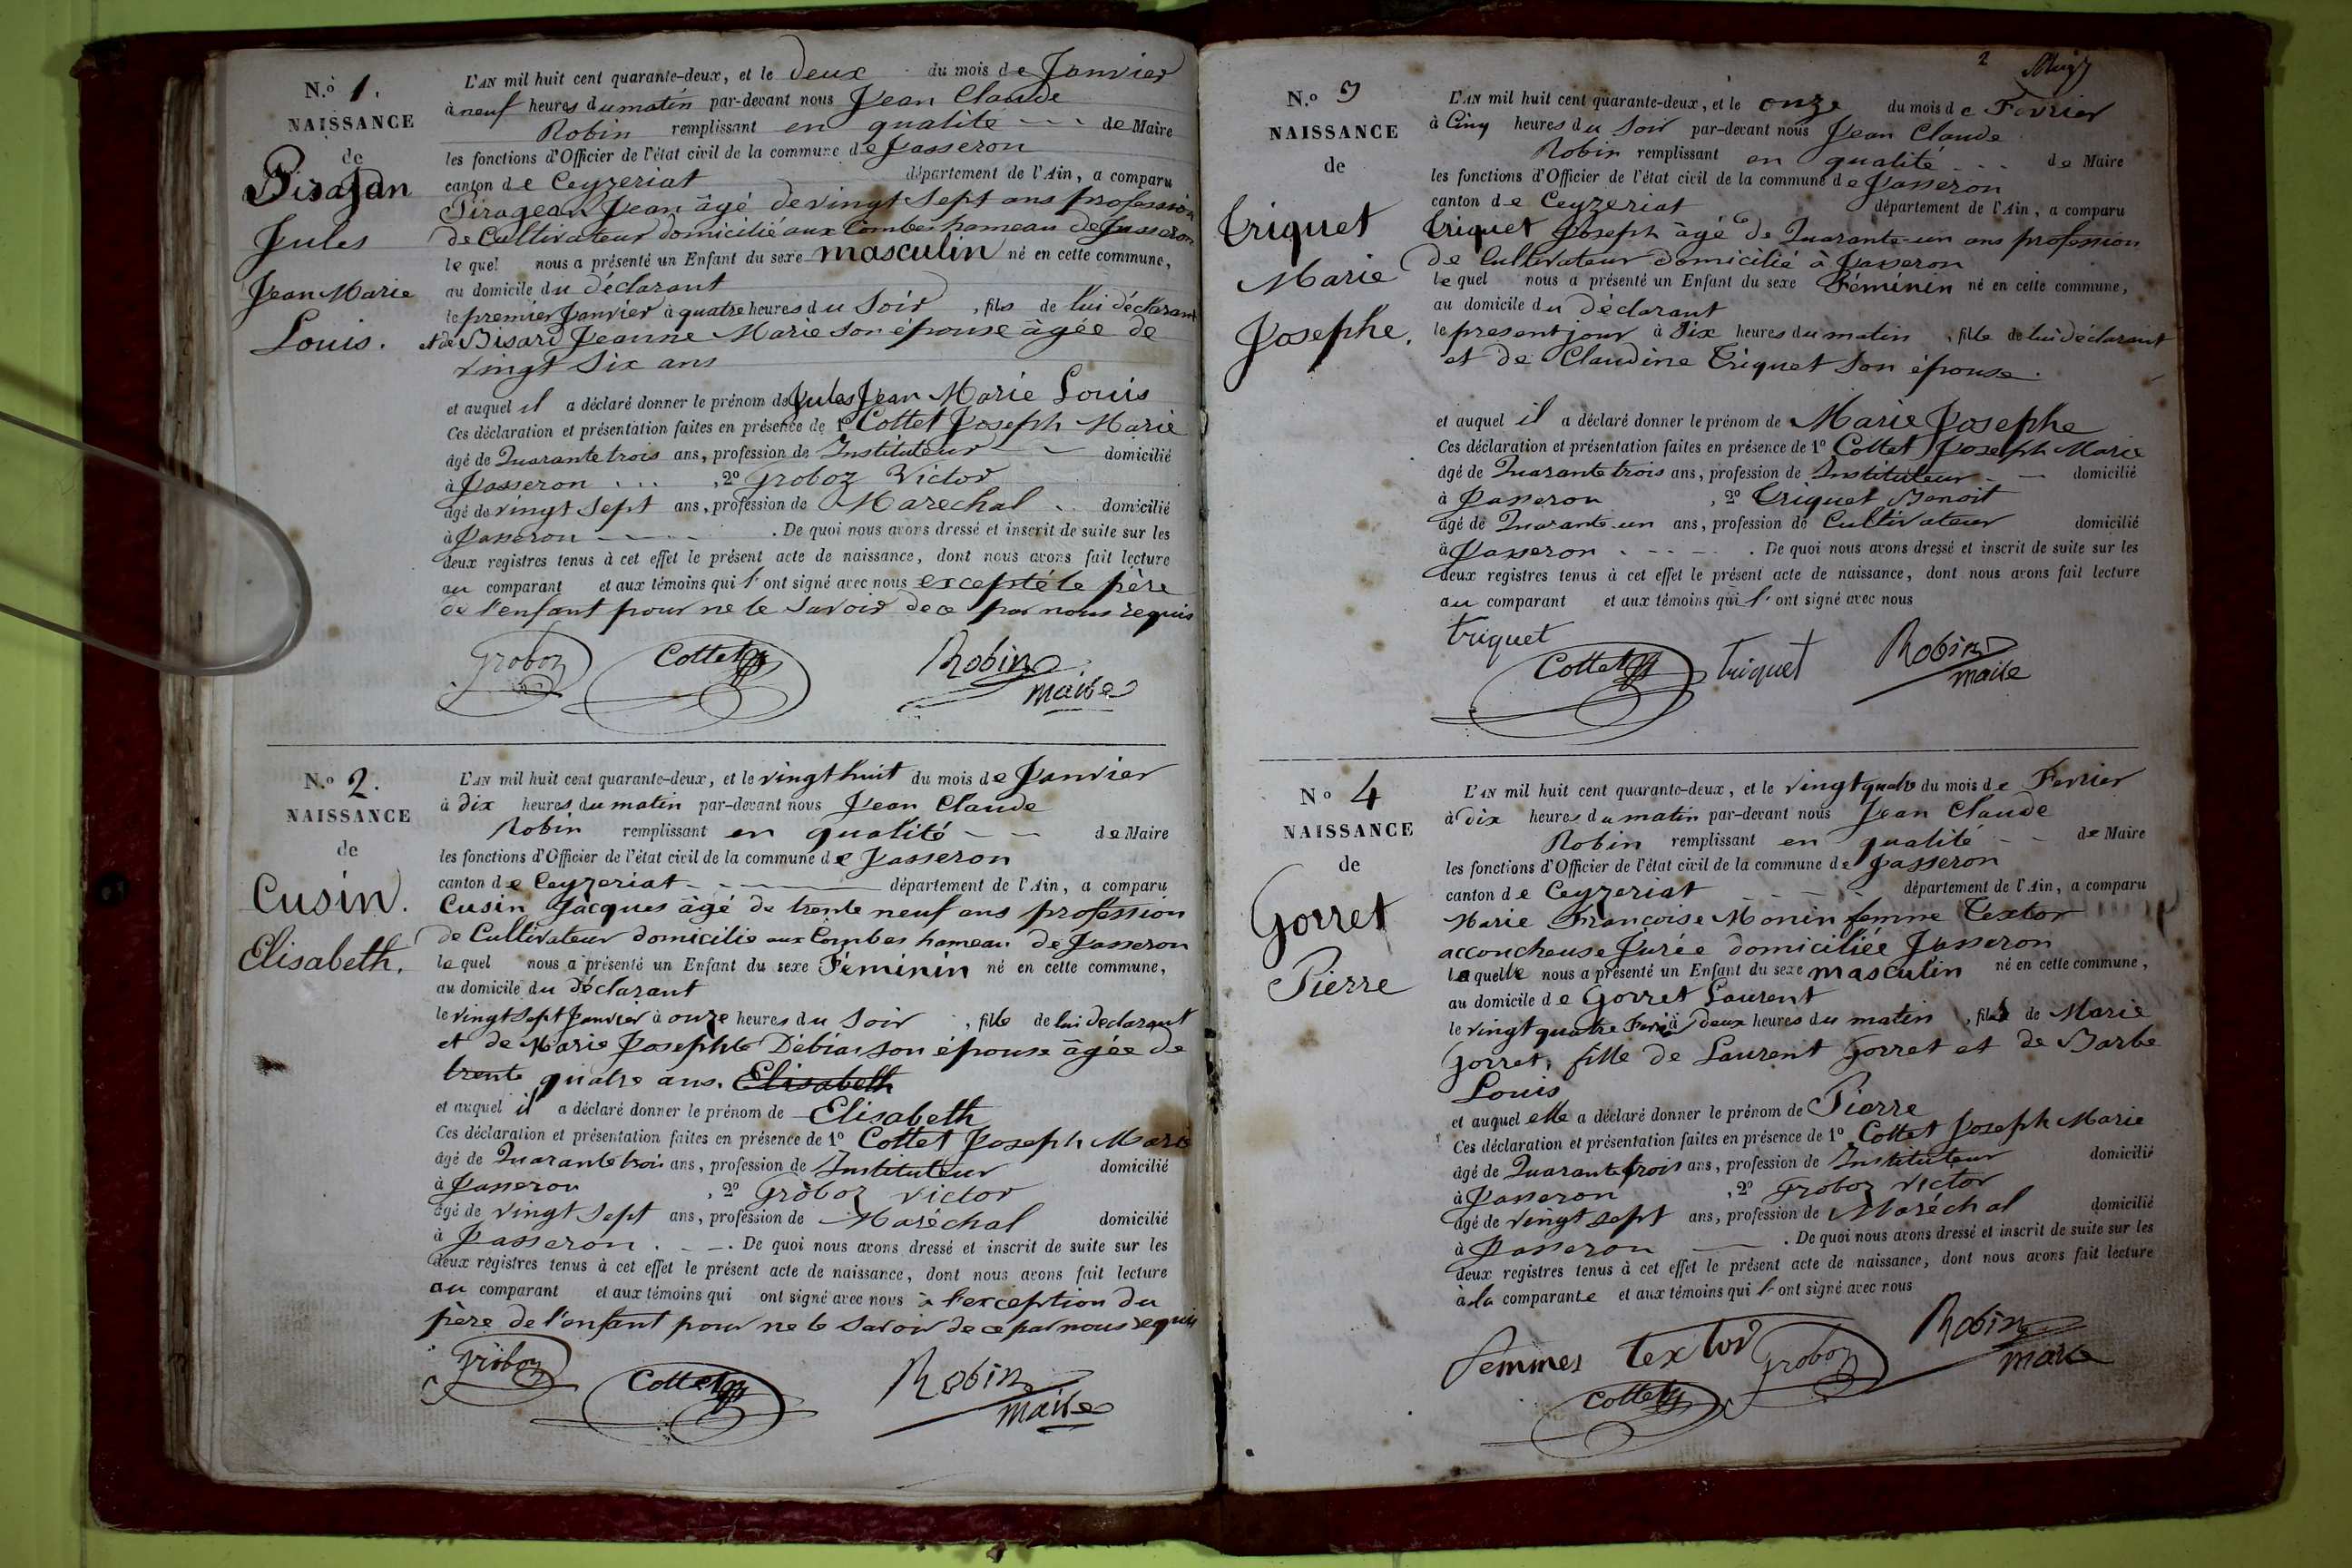 N.o 1.
NAISSANCE
de
Jules
Jean Marie
Louis.
L'AN mil huit cent quarante-deux, et le deux du mois de Janvier
à neuf heures du matin par-devant nous Jean Claude
Robin remplissant en qualité de Maire
les fonctions d'Officier de l'état civil de la commune de Jasseron
canton de Ceyzeriat département de l'Ain, a comparu
Pirajean Jean âgé de vingt sept ans profession
de Cultivateur domicilié aux Combes hameau de Jasseron
le quel nous a présenté un Enfant du sexe masculin né en cette commune,
au domicile du déclarant
le premier Janvier à quatre heures du Soir, fils de lui déclarant
et de Bisard Jeanne Marie son épouse âgée de
vingt Six ans
et auquel il a déclaré donner le prénom de Jules Jean Marie Louis
Ces déclaration et présentation faites en présence de 1o Cottet Joseph Marie
âgé de Quarante trois ans, profession de Instituteur domicilié
à Jasseron, 2o Groboz Victor
âgé de vingt Sept ans, profession de Marechal domicilié
à Jasseron. De quoi nous avons dressé et inscrit de suite sur les
deux registres tenus à cet effet le présent acte de naissance, dont nous avons fait lecture
au comparant et aux témoins qui l'ont signé avec nous excepté le père
de l'enfant pour ne le Savoir de ce par nous requis
Groboz Cottet Robin
maire
N.o 2.
NAISSANCE
de
Cusin.
Elisabeth.
L'AN mil huit cent quarante-deux, et le vingt huit du mois de Janvier
à dix heures du matin par-devant nous Jean Claude
Robin remplissant en qualité de Maire
les fonctions d'Officier de l'état civil de la commune de Jasseron
canton de Ceyzeriat département de l'Ain, a comparu
Cusin Jacques âgé de trente neuf ans profession
de Cultivateur domicilié aux Combes hameau de Jasseron
le quel nous a présenté un Enfant du sexe Féminin né en cette commune,
au domicile du déclarant
le vingt Sept Janvier à onze heures du Soir, fille de lui déclarant
et de Marie Josephte Débias son épouse âgée de
trente quatre ans. Elisabeth
et auquel il a déclaré donner le prénom de Elisabeth
Ces déclaration et présentation faites en présence de 1o Cottet Joseph Marie
âgé de Quarante trois ans, profession de Instituteur domicilié
à Jasseron, 2o Groboz Victor
âgé de vingt Sept ans, profession de Maréchal domicilié
à Jasseron. De quoi nous avons dressé et inscrit de suite sur les
deux registres tenus à cet effet le présent acte de naissance, dont nous avons fait lecture
au comparant et aux témoins qui ont signé avec nous à l'exception du
père de l'enfant pour ne le Savoir de ce par nous requis
Groboz Cottet Robin
maire
2
N.o 3
NAISSANCE
de
Triquet
Marie
Josephe.
L'AN mil huit cent quarante-deux, et le onze du mois de Fevrier
à Cinq heures du Soir par-devant nous Jean Claude
Robin remplissant en qualité de Maire
les fonctions d'Officier de l'état civil de la commune de Jasseron
canton de Ceyzeriat département de l'Ain, a comparu
Triquet Joseph âgé de Quarante-un ans profession
de Cultivateur domicilié à Jasseron
le quel nous a présenté un Enfant du sexe Féminin né en cette commune,
au domicile du déclarant
le present jour à Dix heures du matin, fille de lui déclarant
et de Claudine Triquet Son épouse.
et auquel il a déclaré donner le prénom de Marie Josephe
Ces déclaration et présentation faites en présence de 1o Cottet Joseph Marie
âgé de Quarante trois ans, profession de Instituteur domicilié
à Jasseron, 2o Triquet Benoit
âgé de Quarante-un ans, profession de Cultivateur domicilié
à Jasseron. De quoi nous avons dressé et inscrit de suite sur les
deux registres tenus à cet effet le présent acte de naissance, dont nous avons fait lecture
au comparant et aux témoins qui l'ont signé avec nous
Triquet
Cottet Triquet Robin
maire
No 4
NAISSANCE
de
Gorret
Pierre
L'AN mil huit cent quarante-deux, et le vingt quatre du mois de Fevrier
à dix heures du matin par-devant nous Jean Claude
Robin remplissant en qualité de Maire
les fonctions d'Officier de l'état civil de la commune de Jasseron
canton de Ceyzeriat département de l'Ain, a comparu
Marie Françoise Monin femme Textor
accoucheuse Jurée domiciliée Jasseron
laquelle nous a présenté un Enfant du sexe masculin né en cette commune,
au domicile de Gorret Laurent
le vingt quatre à deux heures du matin, fils de Marie
Gorret, fille de Laurent Gorret et de Barbe
Louis
et auquel elle a déclaré donner le prénom de Pierre
Ces déclaration et présentation faites en présence de 1o Cottet Joseph Marie
âgé de Quarante trois ans, profession de Instituteur domicilié
à Jasseron, 2o Groboz Victor
âgé de vingt sept ans, profession de Maréchal domicilié
à Jasseron. De quoi nous avons dressé et inscrit de suite sur les
deux registres tenus à cet effet le présent acte de naissance, dont nous avons fait lecture
à la comparante et aux témoins qui l'ont signé avec nous
femmes textor Groboz Robin
maire
Cottet